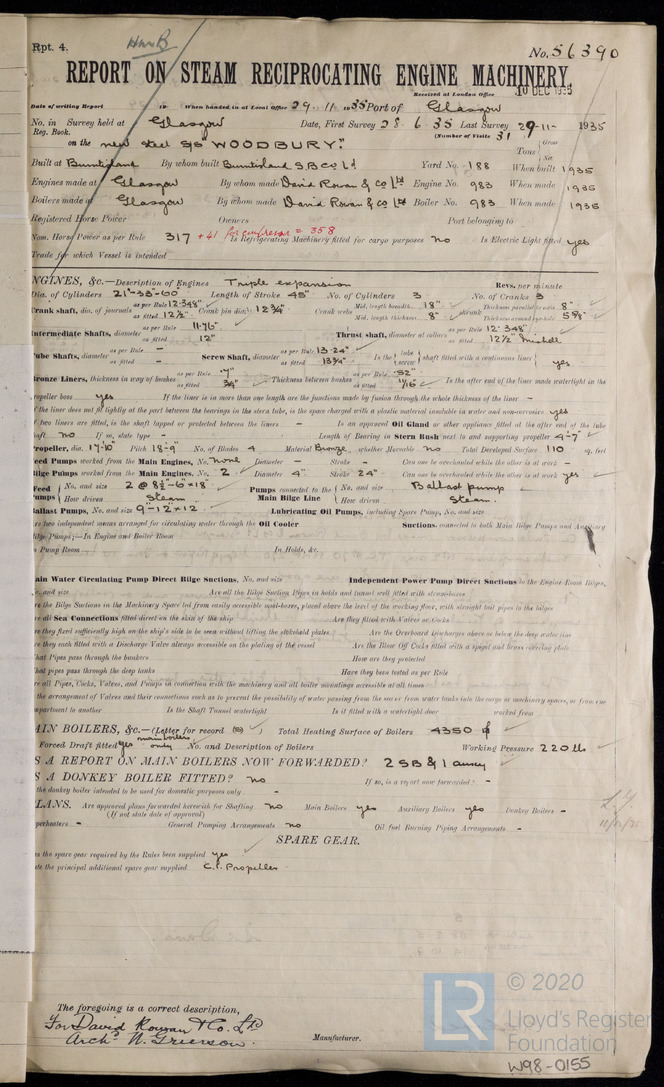 Rpt. 4.
No. 56390
REPORT ON STEAM RECIPROCATING ENGINE MACHINERY.
Received at London Office 10 DEC 1935
Date of writing Report 19 When handed in at Local Office 29. 11. 1935 Port of Glasgow
No. in Survey held at Glasgow Date, First Survey 28. 6. 35 Last Survey 29-11- 1935
Reg. Book. (Number of Visits 31
on the new steel S/S "WOODBURY." Tons Gross Net
Built at Burntisland By whom built Burntisland S.B. Co Ld Yard No. 188 When built 1935
Engines made at Glasgow By whom made David Rowan & Co Ltd Engine No. 983 When made 1935
Boilers made at Glasgow By whom made David Rowan & Co Ltd Boiler No. 983 When made 1935
Registered Horse Power Owners Port belonging to
Nom. Horse Power as per Rule 317 + 41 for compressor = 358 Is Refrigerating Machinery fitted for cargo purposes no Is Electric Light fitted yes
Trade for which Vessel is intended
ENGINES, &c.—Description of Engines Triple expansion Revs. per minute
Dia. of Cylinders 21"-33"-60" Length of Stroke 45" No. of Cylinders 3 No. of Cranks 3
Crank shaft, dia. of journals as per Rule 12.348" as fitted 12 1/2" Crank pin dia. 12 3/4" Crank webs Mid. length breadth 18" Mid. length thickness 8" shrunk Thickness parallel to axis 8" Thickness around eyehole 5 5/8"
Intermediate Shafts, diameter as per Rule 11.76" as fitted 12" Thrust shaft, diameter at collars as per Rule 12.348" as fitted 12 1/2" Michell
Tube Shafts, diameter as per Rule - as fitted - Screw Shaft, diameter as per Rule 13.24" as fitted 13 3/4" Is the tube screw shaft fitted with a continuous liner yes
Bronze Liners, thickness in way of bushes as per Rule .7" as fitted 3/4" Thickness between bushes as per Rule .52" as fitted 11/16" Is the after end of the liner made watertight in the
propeller boss yes If the liner is in more than one length are the junctions made by fusion through the whole thickness of the liner -
If the liner does not fit tightly at the part between the bearings in the stern tube, is the space charged with a plastic material insoluble in water and non-corrosive yes
If two liners are fitted, is the shaft lapped or protected between the liners - Is an approved Oil Gland or other appliance fitted at the after end of the tube
shaft no If so, state type - Length of Bearing in Stern Bush next to and supporting propeller 4'-7"
Propeller, dia. 17'-10" Pitch 18'-9" No. of Blades 4 Material Bronze whether Moveable no Total Developed Surface 110 sq. feet
Feed Pumps worked from the Main Engines, No. none Diameter - Stroke - Can one be overhauled while the other is at work -
Bilge Pumps worked from the Main Engines, No. 2 Diameter 4" Stroke 24" Can one be overhauled while the other is at work yes
Feed Pumps No. and size 2 @ 8 1/2"-6"×18" How driven Steam Pumps connected to the Main Bilge Line No. and size Ballast pump How driven Steam.
Ballast Pumps, No. and size 9"-12"×12" Lubricating Oil Pumps, including Spare Pump, No. and size
Are two independent means arranged for circulating water through the Oil Cooler Suctions, connected to both Main Bilge Pumps and Auxiliary
Bilge Pumps;—In Engine and Boiler Room
In Pump Room In Holds, &c.
Main Water Circulating Pump Direct Bilge Suctions, No. and size Independent Power Pump Direct Suctions to the Engine Room Bilges,
No. and size Are all the Bilge Suction Pipes in holds and tunnel well fitted with strum-boxes
Are the Bilge Suctions in the Machinery Space led from easily accessible mud-boxes, placed above the level of the working floor, with straight tail pipes to the bilges
Are all Sea Connections fitted direct on the skin of the ship Are they fitted with Valves or Cocks
Are they fixed sufficiently high on the ship's side to be seen without lifting the stokehold plates Are the Overboard Discharges above or below the deep water line
Are they each fitted with a Discharge Valve always accessible on the plating of the vessel Are the Blow Off Cocks fitted with a spigot and brass covering plate
What Pipes pass through the bunkers How are they protected
What pipes pass through the deep tanks Have they been tested as per Rule
Are all Pipes, Cocks, Valves, and Pumps in connection with the machinery and all boiler mountings accessible at all times
Is the arrangement of Valves and their connections such as to prevent the possibility of water passing from the sea or from water tanks into the cargo or machinery spaces, or from one
compartment to another Is the Shaft Tunnel watertight Is it fitted with a watertight door worked from
MAIN BOILERS, &c.—(Letter for record (S) ) Total Heating Surface of Boilers 4350
Is Forced Draft fitted yes main boilers only No. and Description of Boilers Working Pressure 220 lbs
IS A REPORT ON MAIN BOILERS NOW FORWARDED? 2 SB & 1 auxy
IS A DONKEY BOILER FITTED? no If so, is a report now forwarded? -
Is the donkey boiler intended to be used for domestic purposes only -
PLANS. Are approved plans forwarded herewith for Shafting no Main Boilers yes Auxiliary Boilers yes Donkey Boilers -
(If not state date of approval)
Superheaters - General Pumping Arrangements no Oil fuel Burning Piping Arrangements -
SPARE GEAR.
Has the spare gear required by the Rules been supplied yes
State the principal additional spare gear supplied C.I. Propeller
The foregoing is a correct description,
For David Rowan & Co. Ltd
Archd W. Grierson. Manufacturer.
© 2020
LR Lloyd's Register
Foundation
W98-0155